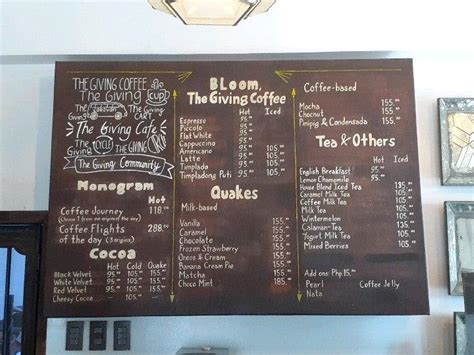 THE GIVING COFFEE
The Giving CUP!
The Giving CART
The Giving Cafe
The Giving CYCLE
The Giving Community
Monogram
Hot
Coffee Journey 118.00
Coffee Flights 288.00
of the day (3 origins)
Cocoa
Hot Cold Quake
Black Velvet 95.00 105.00 155.00
White Velvet 95.00 105.00 155.00
Red Velvet 95.00 105.00 155.00
Cheesy Cocoa
Bloom,
The Giving Coffee
Hot Iced
Espresso 95.00
Piccolo 95.00
Flat White 95.00
Cappuccino 95.00
Americano 95.00 105.00
Latte 95.00 105.00
Timplada 95.00 105.00
Timpladong Puti 95.00 105.00
Quakes
Milk-based
Vanilla 155.00
Caramel 155.00
Chocolate 155.00
Frozen Strawberry 155.00
Oreos & Cream 155.00
Banana Cream Pie 155.00
Matcha 155.00
Choco Mint 185.00
Coffee-based
Mocha 155.00
Chocnut 155.00
Pinipig & Condensada 155.00
Tea & Others
Hot Iced
English Breakfast
Lemon Chamomile
House Blend Iced Tea
Caramel Milk Tea 105.00
Coffee Milk Tea 105.00
Milk Tea 105.00
Wintermelon 105.00
Calaman-Tea 105.00
Yogurt Milk Tea 105.00
Mixed Berries 105.00
Add ons Php 15.00
Pearl Coffee Jelly
Nata